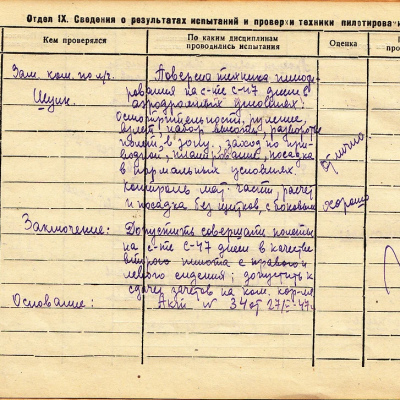 Отдел IX. Сведения о результатах испытаний и проверки техники пилотирова
Кем проверялся
По каким дисциплинам проводились испытания
Оценка
Зам. ком. по л/ч.
Шуин.
Поверена техника пилоти-
рования на с-те С-47 днем в
аэродромных условиях:
Осмотрительность, руление,
взлет, набор высоты, развороты
полет в зону, заход по при-
водной, планирование, посадка
в нормальных условиях.
Отлично
Контроль мат. части, расчет
и посадка без щитков, с боковым
хорошо
Заключение: Допустить совершать полеты
на с-те С-47 днем в качестве
второго пилота с правого и
левого сидения; допустить к
сдачи зачетов на ком. кор-ля
Основание: Акт № 34 от 27/
47г.